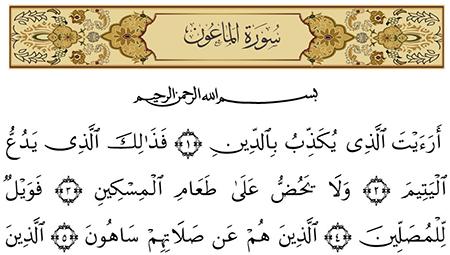 سُورَةُ المَاعُونِ
بسم الله الرحمن الرحيم
أَرَءَيْتَ ٱلَّذِى يُكَذِّبُ بِٱلدِّينِ ﴿١﴾ فَذَٰلِكَ ٱلَّذِى يَدُعُّ
ٱلْيَتِيمَ ﴿٢﴾ وَلَا يَحُضُّ عَلَىٰ طَعَامِ ٱلْمِسْكِينِ ﴿٣﴾ فَوَيْلٌ
لِّلْمُصَلِّينَ ﴿٤﴾ ٱلَّذِينَ هُمْ عَن صَلَاتِهِمْ سَاهُونَ ﴿٥﴾ ٱلَّذِينَ